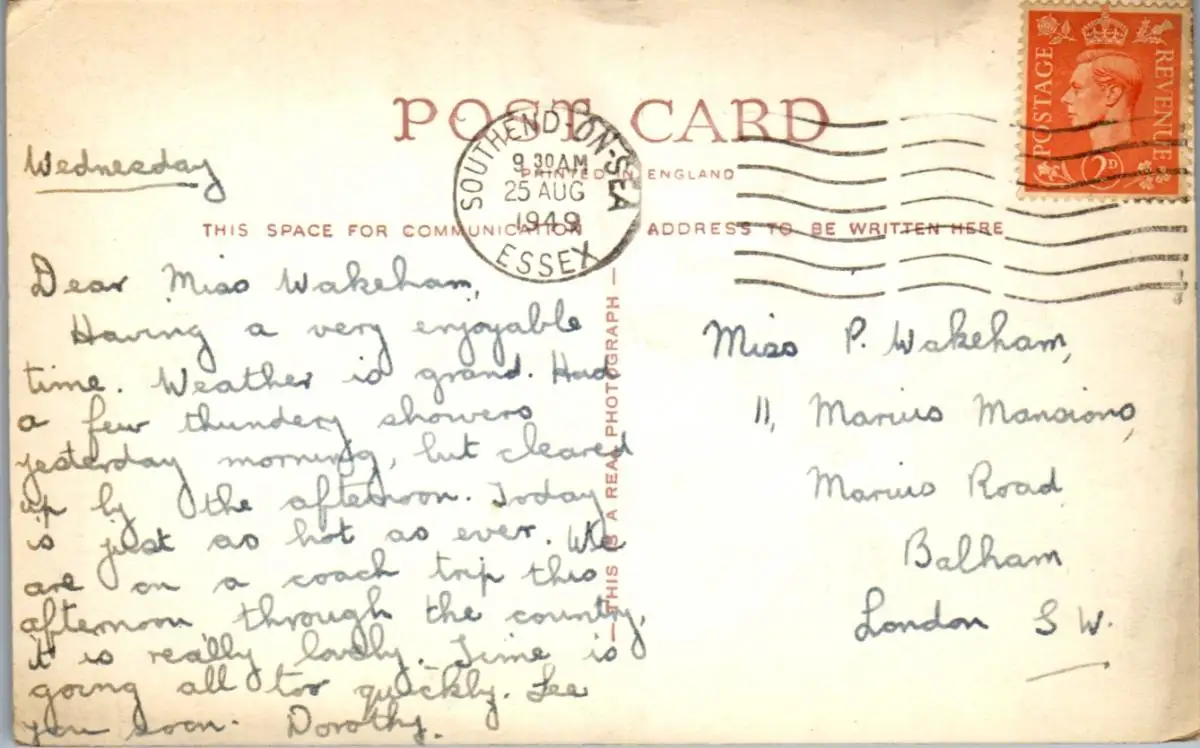 POST CARD
PRINTED IN ENGLAND
THIS SPACE FOR COMMUNICATION
ADDRESS TO BE WRITTEN HERE
THIS IS A REAL PHOTOGRAPH
SOUTHEND-ON-SEA
9 30 AM
25 AUG
1949
ESSEX
POSTAGE
REVENUE
2D
Wednesday
Dear Miss Wakeham,
Having a very enjoyable
time. Weather is grand. Had
a few thundery showers
yesterday morning, but cleared
up by the afternoon. Today
is just as hot as ever. We
are on a coach trip this
afternoon through the country,
it is really lovely. Time is
going all too quickly. See
you soon. Dorothy.
Miss P. Wakeham,
11, Marius Mansions,
Marius Road
Balham
London S W.